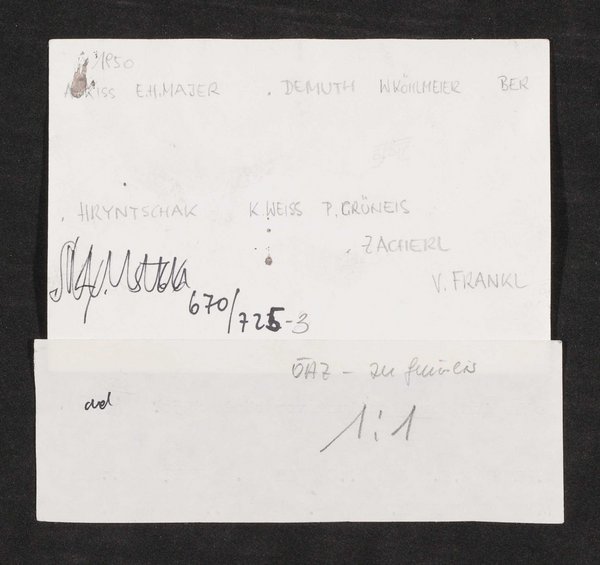 1950
KISS E.H.MAJER . DEMUTH W.KÖHLMEIER BER
. HRYNTSCHAK K.WEISS P.GRÜNEIS
. ZACHERL
V. FRANKL
670/725-3
ÖAZ - zu
1:1